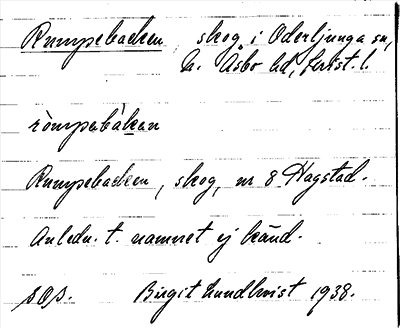 Rumpebacken, skog i Oderljunga sn,
N. Åsbo hd, Krist. l.
ròmpebàkan
Rumpebacken, skog, nr 8 Hagstad.
Anledn. t. namnet ej känd.
SOD. Birgit Lundkvist 1938.